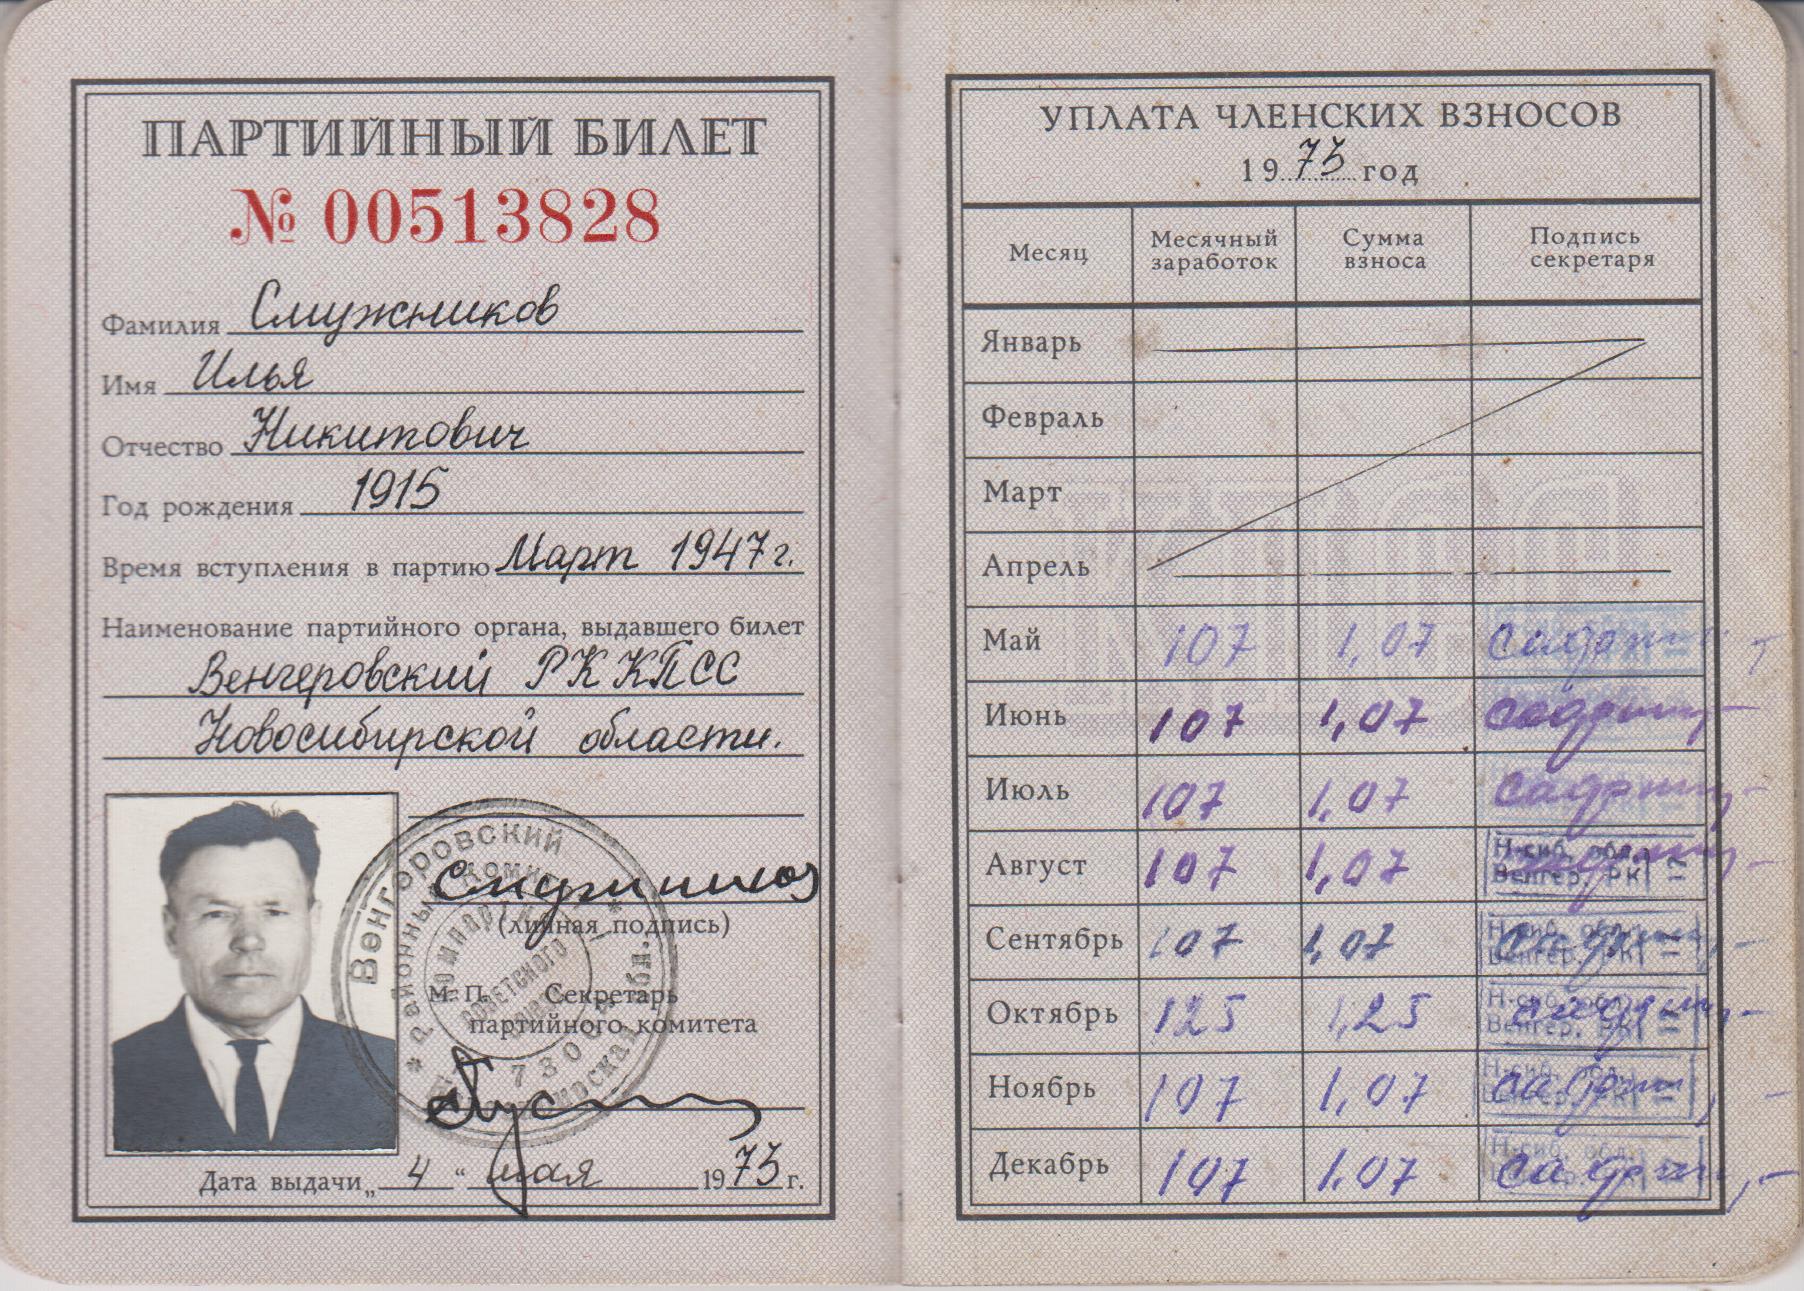 ПАРТИЙНЫЙ БИЛЕТ
№ 00513828
Фамилия Смужников
Имя Илья
Отчество Никитович
Год рождения 1915
Время вступления в партию Март 1947 г.
Наименование партийного органа, выдавшего билет
Венгеровский РК КПСС
Новосибирской области.
Венгеровский
(личная подпись)
М. П. Секретарь
партийного комитета
Дата выдачи „ 4 “ мая 1973 г.
УПЛАТА ЧЛЕНСКИХ ВЗНОСОВ
1973 год
Месяц Месячный заработок Сумма взноса Подпись секретаря
Январь
Февраль
Март
Апрель
Май 107 1,07
Июнь 107 1,07
Июль 107 1,07
Август 107 1,07 Н-сиб. обл. Венгер. РК
Сентябрь 107 1,07 Н-сиб. обл. Венгер. РК
Октябрь 125 1,25 Н-сиб. обл. Венгер. РК
Ноябрь 107 1,07 Н-сиб. обл. Венгер. РК
Декабрь 107 1,07 Н-сиб. обл.